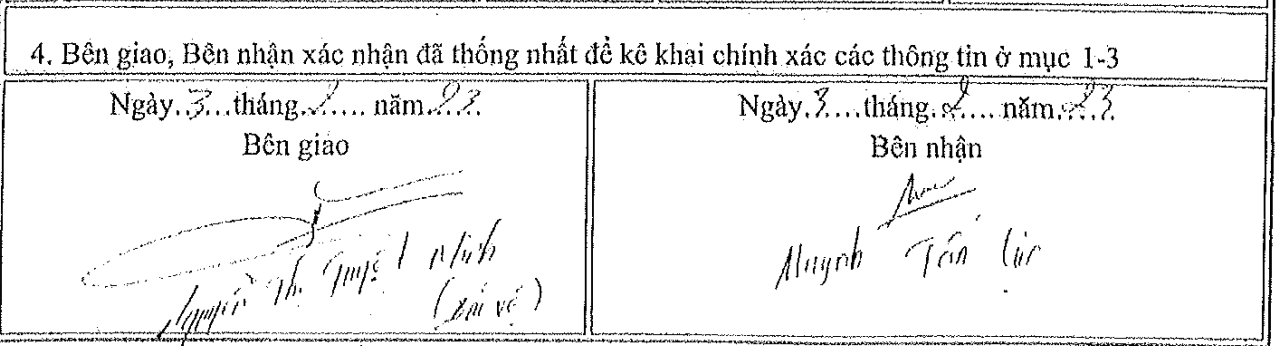 4. Bên giao, Bên nhận xác nhận đã thống nhất để kê khai chính xác các thông tin ở mục 1-3
Ngày..3...tháng..2.... năm..23.
Bên giao
Nguyễn Thị Tuyết Minh
Ngày.3....tháng..2.... năm..23.
Bên nhận
Huỳnh Tấn Lực